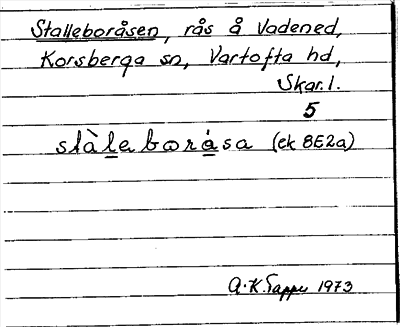 Stalleboråsen, rås å Vadened,
Korsberga sn, Vartofta hd,
Skar. l.
5
stàleboråsa (ek 8E2a)
A. K. Tappu 1973